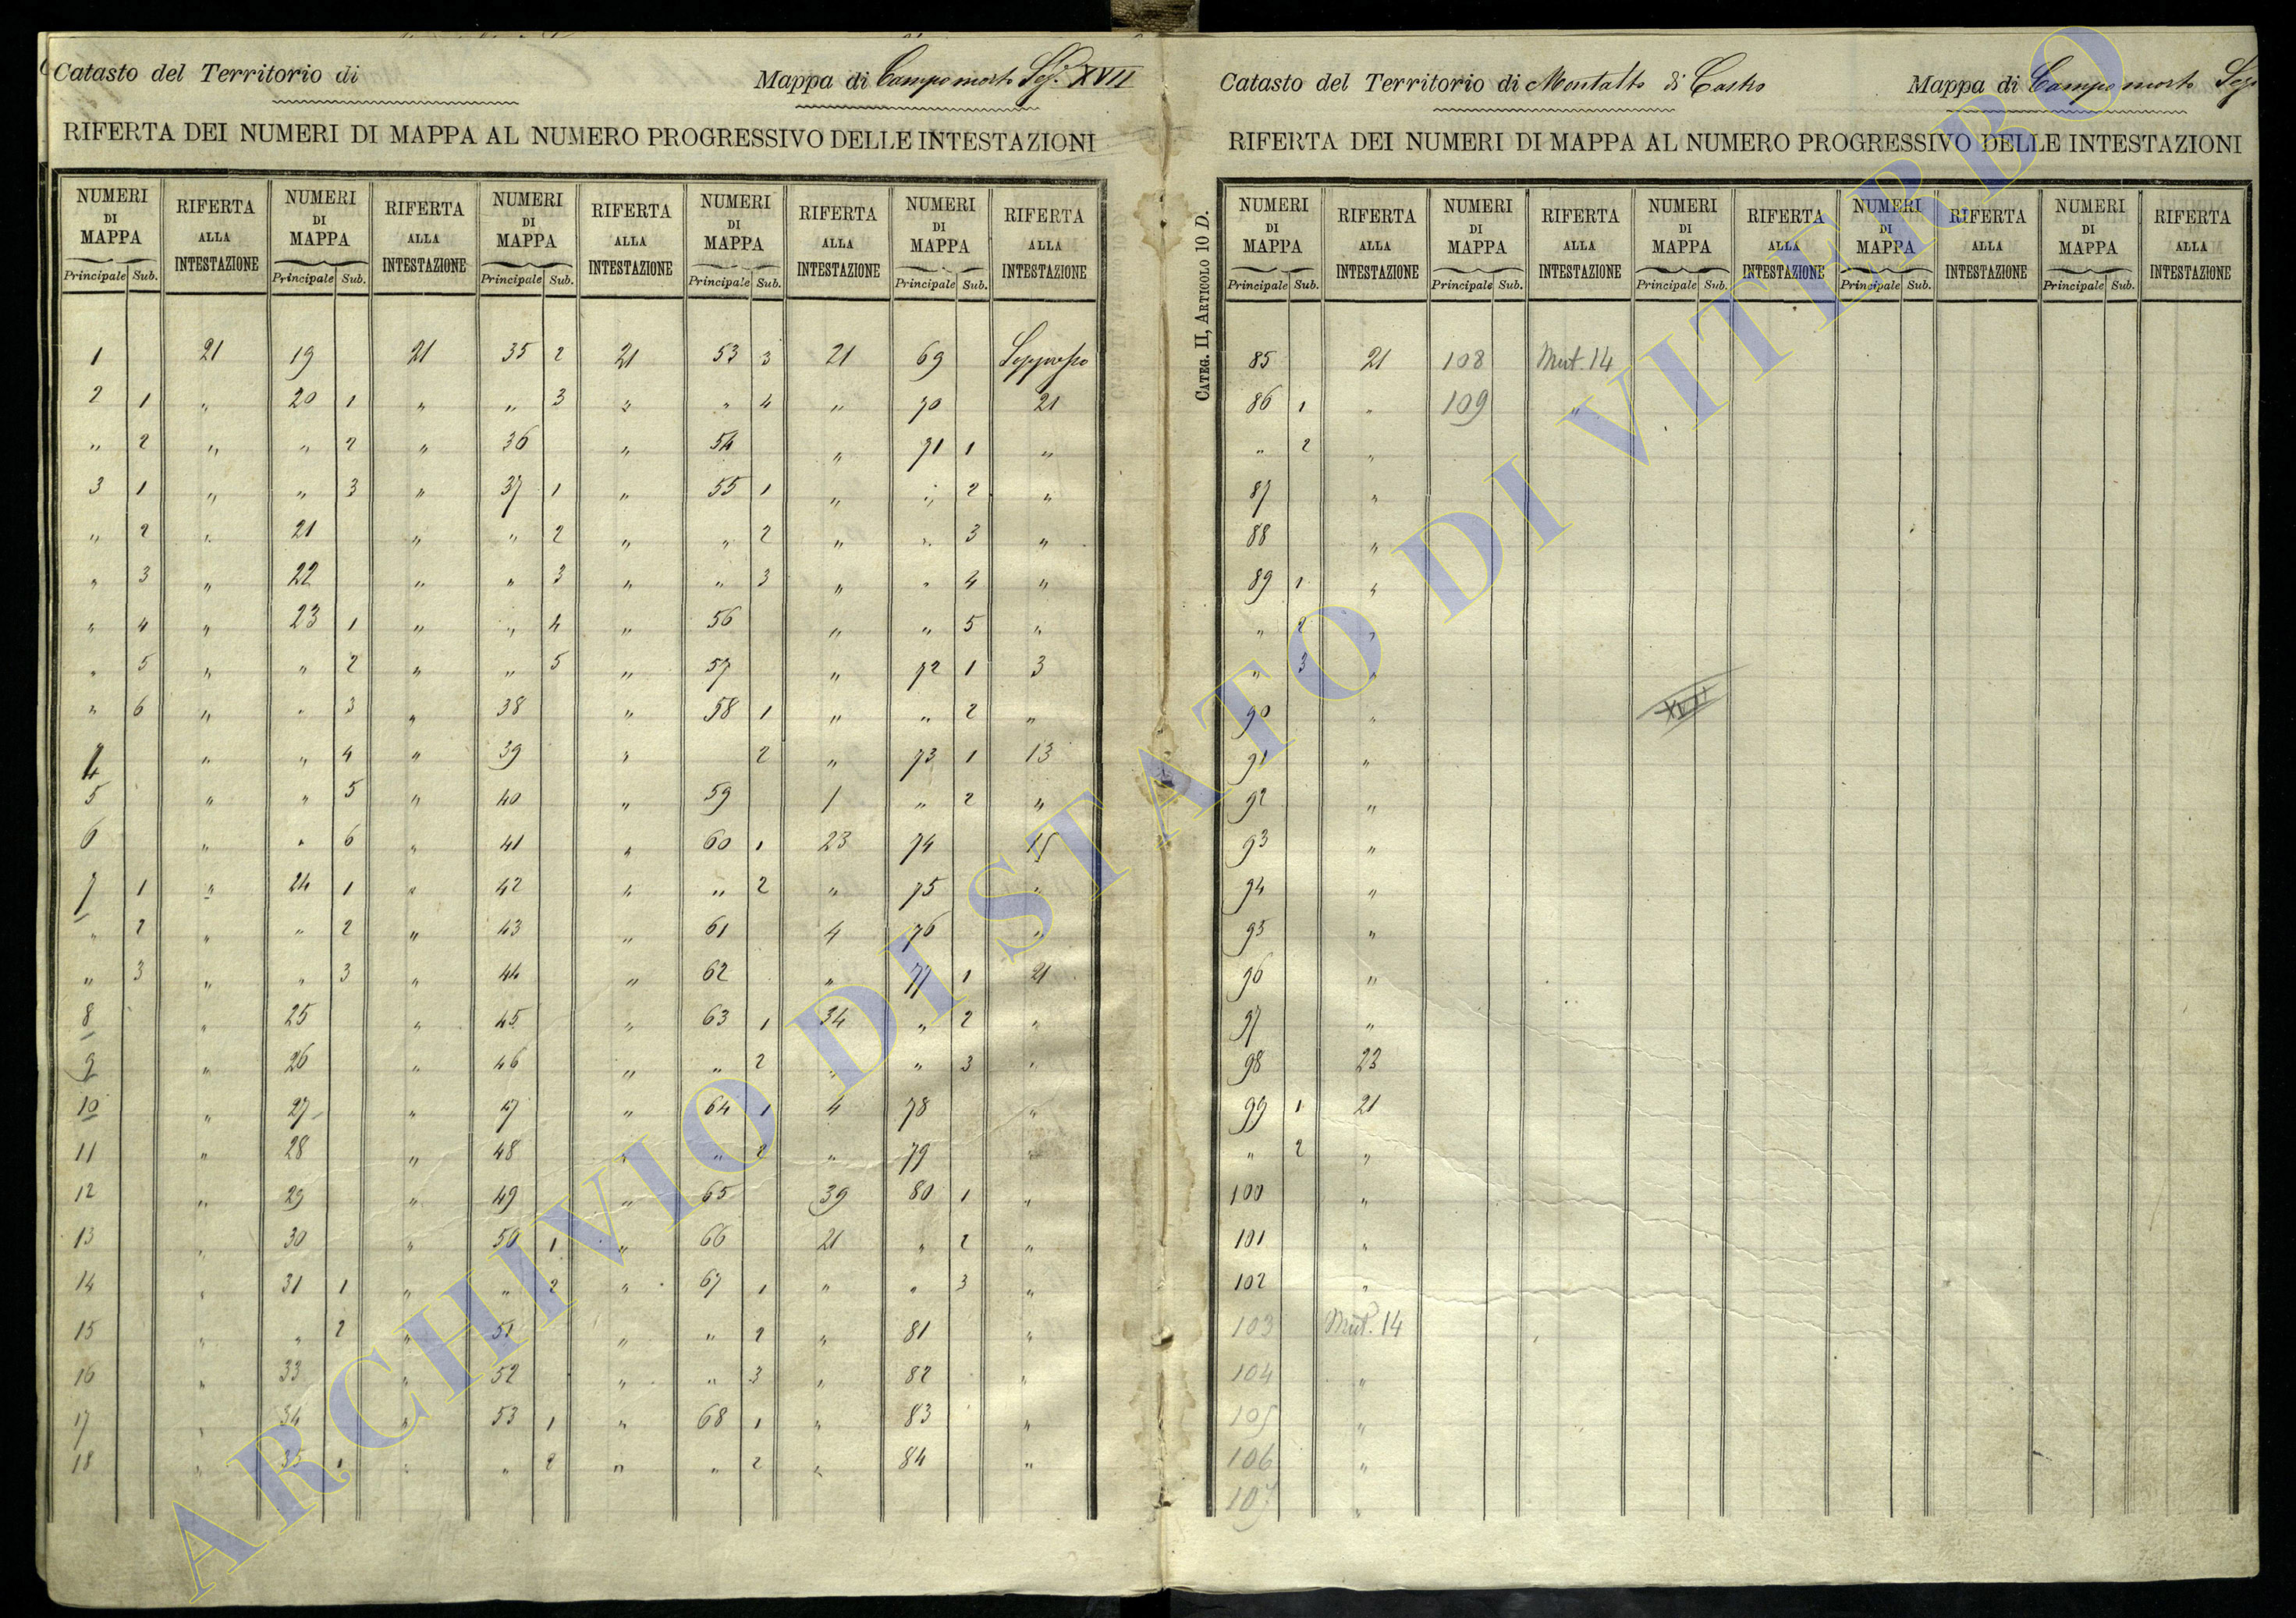 Catasto del Territorio di
Mappa di Campomorto Sez. XVII
RIFERTA DEI NUMERI DI MAPPA AL NUMERO PROGRESSIVO DELLE INTESTAZIONI
NUMERI DI MAPPA RIFERTA ALLA INTESTAZIONE NUMERI DI MAPPA RIFERTA ALLA INTESTAZIONE NUMERI DI MAPPA RIFERTA ALLA INTESTAZIONE NUMERI DI MAPPA RIFERTA ALLA INTESTAZIONE NUMERI DI MAPPA RIFERTA ALLA INTESTAZIONE
Principale Sub. Principale Sub. Principale Sub. Principale Sub. Principale Sub.
1 21 19 21 35 2 21 53 3 21 69 Soppresso
2 1 " 20 1 " " 3 " " 4 " 70 21
" 2 " " 2 " 36 " 54 " 71 1 "
3 1 " " 3 " 37 1 " 55 1 " " 2 "
" 2 " 21 " " 2 " " 2 " " 3 "
" 3 " 22 " " 3 " " 3 " " 4 "
" 4 " 23 1 " " 4 " 56 " " 5 "
" 5 " " 2 " " 5 " 57 " 72 1 3
" 6 " " 3 " 38 " 58 1 " " 2 "
4 " " 4 " 39 " 2 " 73 1 13
5 " " 5 " 40 " 59 1 " 2 "
6 " " 6 " 41 " 60 1 23 74 15
7 1 " 24 1 " 42 " " 2 " 75 "
" 2 " " 2 " 43 " 61 4 76 "
" 3 " " 3 " 44 " 62 " 77 1 21
8 " 25 " 45 " 63 1 34 " 2 "
9 " 26 " 46 " " 2 " " 3 "
10 " 27 " 47 " 64 1 4 78 "
11 " 28 " 48 " " 2 " 79 "
12 " 29 " 49 " 65 39 80 1 "
13 " 30 " 50 1 " 66 21 " 2 "
14 " 31 1 " " 2 " 67 1 " " 3 "
15 " " 2 " 51 " " 2 " 81 "
16 " 33 " 52 " " 3 " 82 "
17 " 34 " 53 1 " 68 1 " 83 "
18 " 35 1 " " 2 " " 2 " 84 "
CATEG. II, ARTICOLO 10 D.
Catasto del Territorio di Montalto di Castro
Mappa di Campomorto Sez
RIFERTA DEI NUMERI DI MAPPA AL NUMERO PROGRESSIVO DELLE INTESTAZIONI
NUMERI DI MAPPA RIFERTA ALLA INTESTAZIONE NUMERI DI MAPPA RIFERTA ALLA INTESTAZIONE NUMERI DI MAPPA RIFERTA ALLA INTESTAZIONE NUMERI DI MAPPA RIFERTA ALLA INTESTAZIONE NUMERI DI MAPPA RIFERTA ALLA INTESTAZIONE
Principale Sub. Principale Sub. Principale Sub. Principale Sub. Principale Sub.
85 21 108 Mut. 14
86 1 " 109 "
" 2 "
87 "
88 "
89 1 "
" 2 "
" 3 "
90 "
XVII
91 "
92 "
93 "
94 "
95 "
96 "
97 "
98 23
99 1 21
" 2 "
100 "
101 "
102 "
103 Mut. 14
104 "
105 "
106 "
107 "
ARCHIVIO DI STATO DI VITERBO